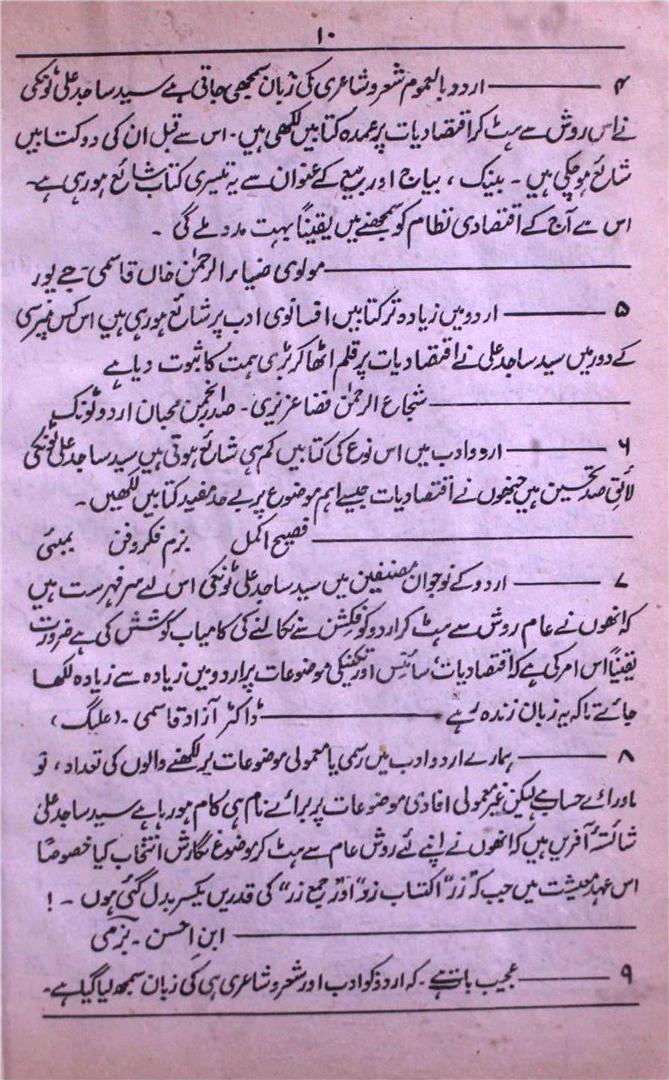 ۱۰
۴ ——— اردو بالعموم شعر و شاعری کی زبان سمجھی جاتی ہے سید ساجد علی ٹونکی
نے اس روش سے ہٹ کر اقتصادیات پر عمدہ کتابیں لکھی ہیں۔ اس سے قبل ان کی دو کتابیں
شائع ہو چکی ہیں۔ بینک ، بیاج اور بیع کے عنوان سے یہ تیسری کتاب شائع ہو رہی ہے۔
اس سے آج کے اقتصادی نظام کو سمجھنے میں یقیناً بہت مدد ملے گی ۔
——— مولوی ضیاء الرحمٰن خاں قاسمی جے پور
۵ ——— اردو میں زیادہ تر کتابیں افسانوی ادب پر شائع ہو رہی ہیں اس کس مپرسی
کے دور میں سید ساجد علی نے اقتصادیات پر قلم اٹھا کر بڑی ہمت کا ثبوت دیا ہے
——— شجاع الرحمٰن فضا عزیزی۔ صدر انجمن محبان اردو ٹونک
۶ ——— اردو ادب میں اس نوع کی کتابیں کم ہی شائع ہوتی ہیں سید ساجد علی ٹونکی
لائق صد تحسین ہیں جنھوں نے اقتصادیات جیسے اہم موضوع پر بے حد مفید کتابیں لکھیں۔
——— فصیح اکمل بزم فکر و فن بمبئی
۷ ——— اردو کے نوجوان مصنفین میں سید ساجد علی ٹونکی اس لئے سر فہرست ہیں
کہ انھوں نے عام روش سے ہٹ کر اردو کو فکشن سے نکالنے کی کامیاب کوشش کی ہے ضرورت
یقیناً اس امر کی ہے کہ اقتصادیات سائنس اور تکنیکی موضوعات پر اردو میں زیادہ سے زیادہ لکھا
جائے تاکہ یہ زبان زندہ رہے ——— ڈاکٹر آزاد قاسمی ۔ (علیگ)
۸ ——— ہمارے اردو ادب میں رسمی یا معمولی موضوعات پر لکھنے والوں کی تعداد ، تو
ماورائے حساب ہے لیکن غیر معمولی افادی موضوعات پر برائے نام ہی کام ہو رہا ہے سید ساجد علی
شائستۂ آفریں ہیں کہ انھوں نے اپنے لئے روش عام سے ہٹ کر موضوع نگارش انتخاب کیا خصوصاً
اس عہد معیشت میں جب کہ "زر" اکتساب زر" اور "جمع زر" کی قدریں یکسر بدل گئی ہوں ۔!
——— ابن احسن ۔ بزمی
۹ ——— عجیب بات ہے ۔ کہ اردو کو ادب اور شعر و شاعری ہی کی زبان سمجھ لیا گیا ہے۔